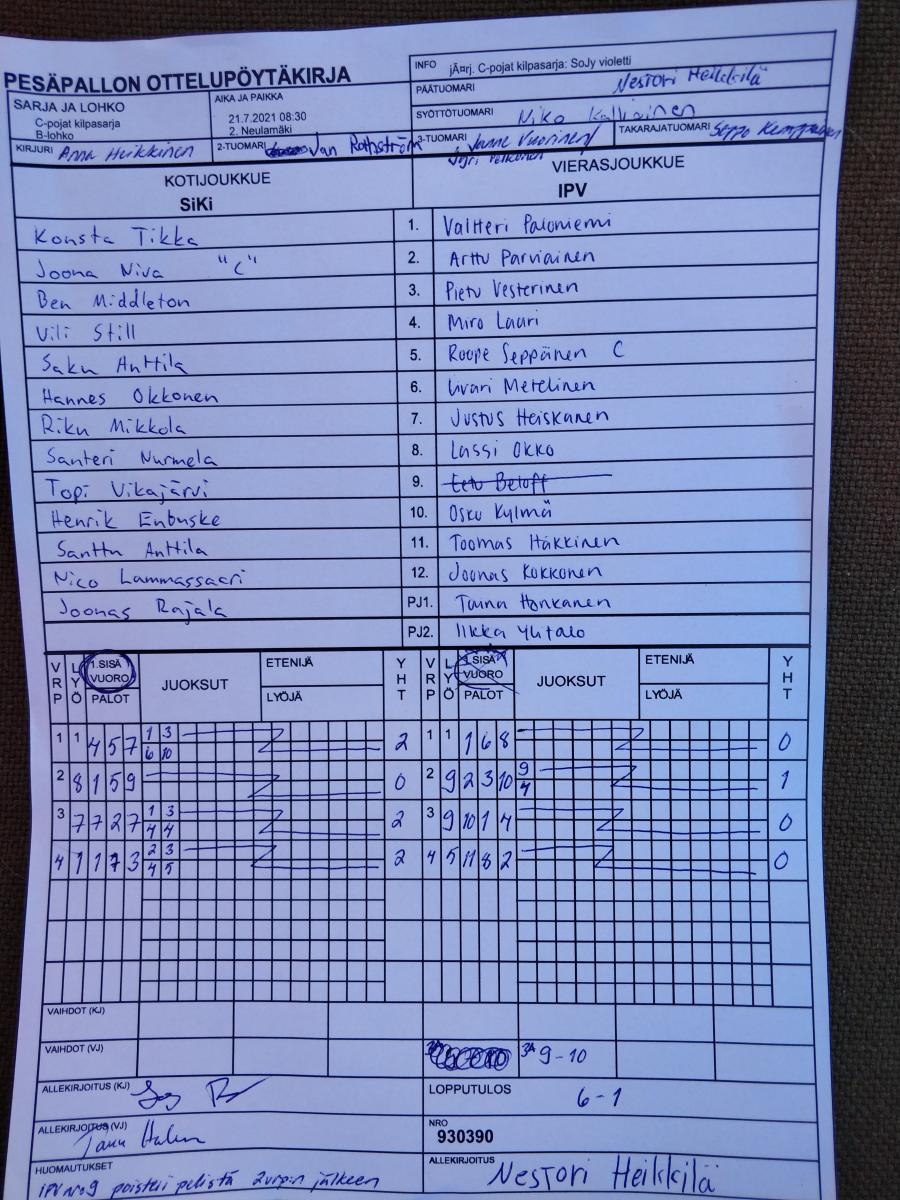 PESÄPALLON OTTELUPÖYTÄKIRJA
INFO jÃ¤rj. C-pojat kilpasarja: SoJy violetti
PÄÄTUOMARI Nestori Heikkilä
SARJA JA LOHKO
C-pojat kilpasarja
B-lohko
AIKA JA PAIKKA
21.7.2021 08:30
2. Neulamäki
SYÖTTÖTUOMARI Niko
KIRJURI Anna Heikkinen
2-TUOMARI Jan Rothström
3-TUOMARI Janne Vuorinen/
TAKARAJATUOMARI Seppo Kemppainen
KOTIJOUKKUE
SiKi
VIERASJOUKKUE
IPV
Konsta Tikka 1. Valtteri Paloniemi
Joona Niva "C" 2. Arttu Parviainen
Ben Middleton 3. Pietu Vesterinen
Vili Still 4. Miro Lauri
Saku Anttila 5. Roope Seppänen C
Hannes Okkonen 6. Iivari Metelinen
Riku Mikkola 7. Justus Heiskanen
Santeri Nurmela 8. Lassi Okko
Topi Vikajärvi 9. Eetu Beloff
Henrik Enbuske 10. Osku Kylmä
Santtu Anttila 11. Toomas Häkkinen
Nico Lammassaari 12. Joonas Kokkonen
Joonas Rajala PJ1. Taina Honkanen
PJ2. Ilkka Ylitalo
VRP LYÖ 1.SISÄ VUORO PALOT JUOKSUT ETENIJÄ LYÖJÄ YHT VRP LYÖ 1.SISÄ VUORO PALOT JUOKSUT ETENIJÄ LYÖJÄ YHT
1 1 4 5 7 1 3 2 1 1 1 6 8 0
6 10
2 8 1 5 9 0 2 9 2 3 10 9 1
4
3 7 7 2 7 1 3 2 3 9 10 1 4 0
4 4
4 1 1 7 3 2 3 2 4 5 11 8 2 0
4 5
VAIHDOT (KJ)
VAIHDOT (VJ) 3A 9-10
ALLEKIRJOITUS (KJ)
LOPPUTULOS 6-1
ALLEKIRJOITUS (VJ)
NRO
930390
HUOMAUTUKSET
IPV nro 9 poisteri pelistä 2vrp:n jälkeen
ALLEKIRJOITUS Nestori Heikkilä